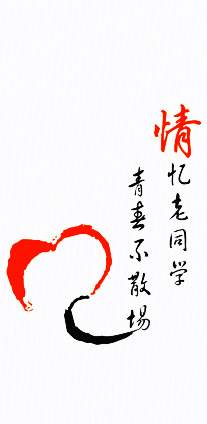 情忆老同学
青春不散场